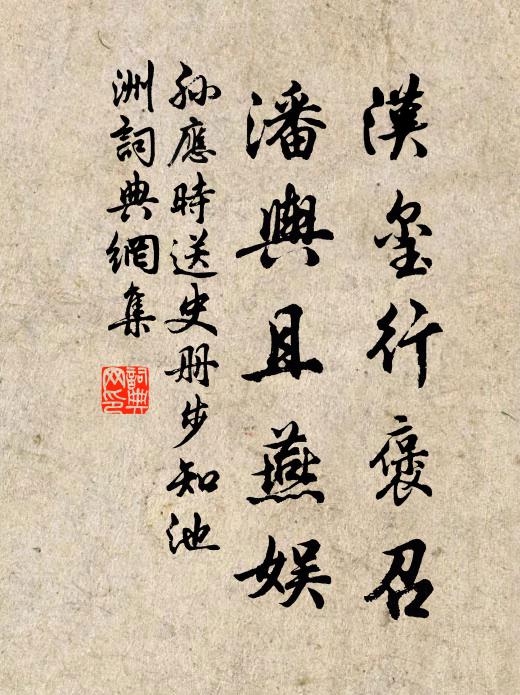 漢璽行褒召
潘輿且燕娛
孫應時送史册步知池
洲詞典網集
詞典
网印